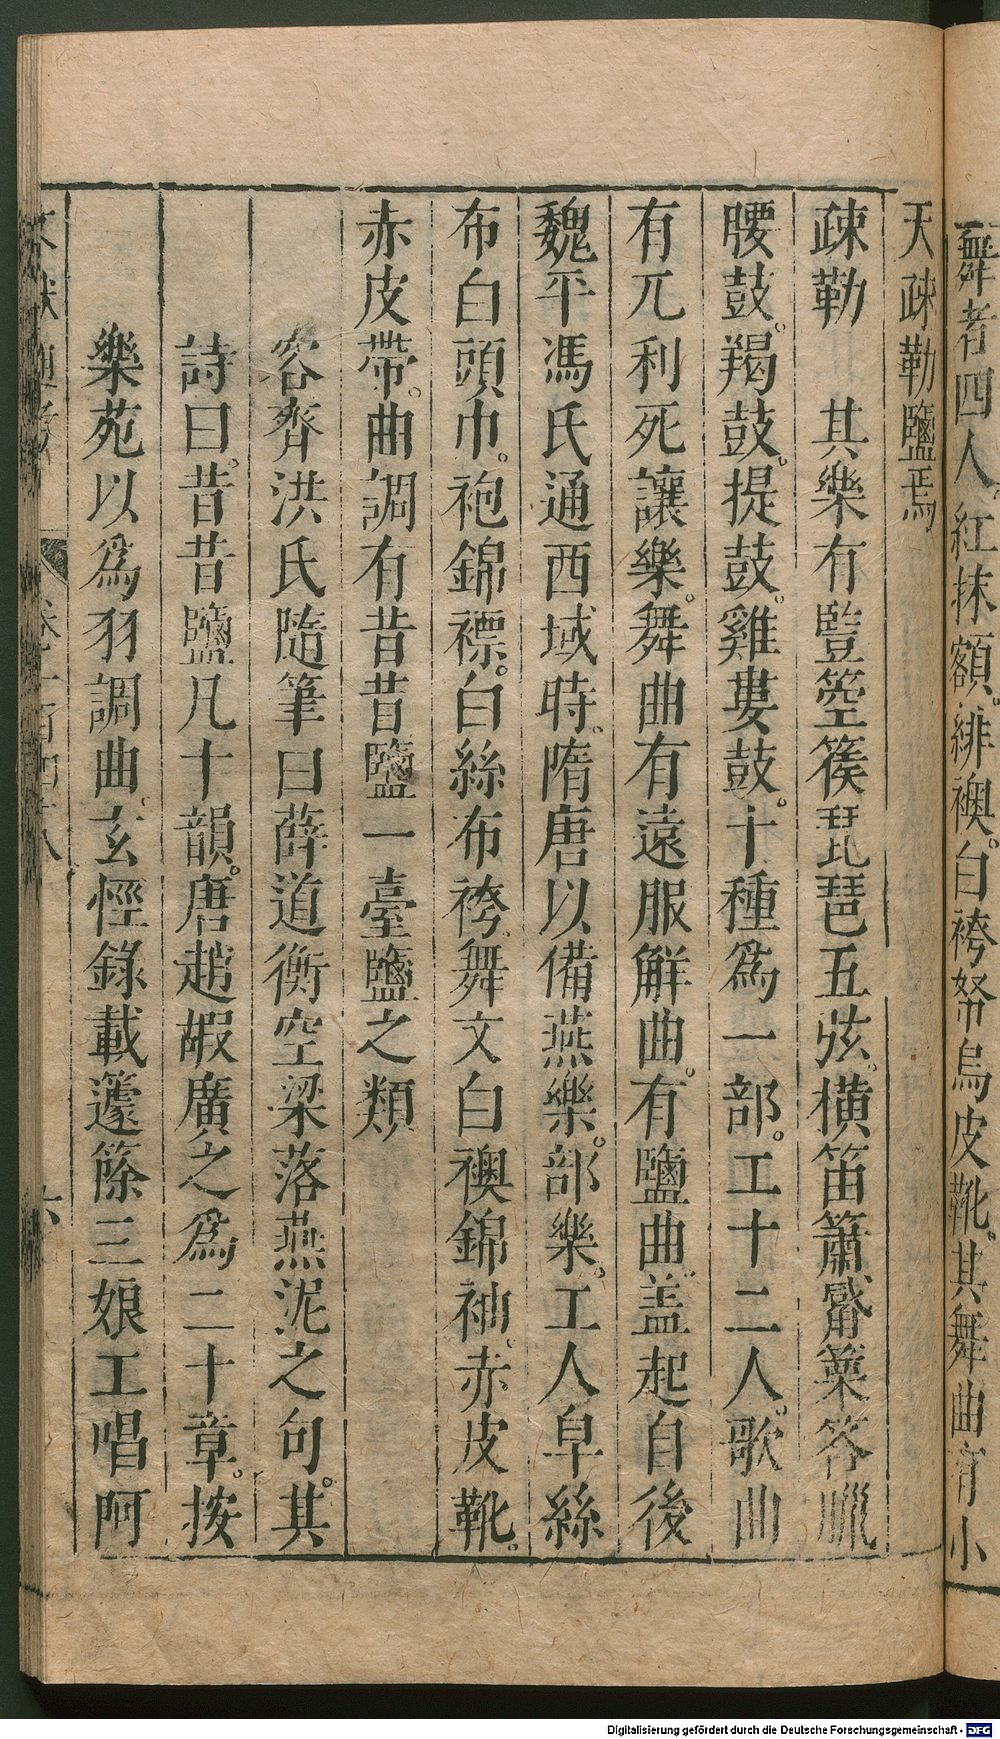 舞者四人紅抹額緋襖白袴帑烏皮靴其舞曲有小
天疎勒鹽焉
疎勒　其樂有豎箜篌琵琶五弦橫笛簫篳篥荅臘
腰鼓羯鼓提鼓雞婁鼓十種爲一部工十二人歌曲
有兀利死讓樂舞曲有遠服解曲有鹽曲盖起自後
魏平馮氏通西域時隋唐以備燕樂部樂工人皁絲
布白頭巾袍錦褾白絲布袴舞文白襖錦袖赤皮靴
赤皮帶曲調有昔昔鹽一臺鹽之類
容齊洪氏隨筆曰薛道衡空梁落燕泥之句其
詩曰昔昔鹽凡十韻唐趙嘏廣之爲二十章按
樂苑以爲羽調曲玄怪錄載籧篨三娘工唱阿
文獻通考　卷一百四十八　六
Digitalisierung gefördert durch die Deutsche Forschungsgemeinschaft - DFG